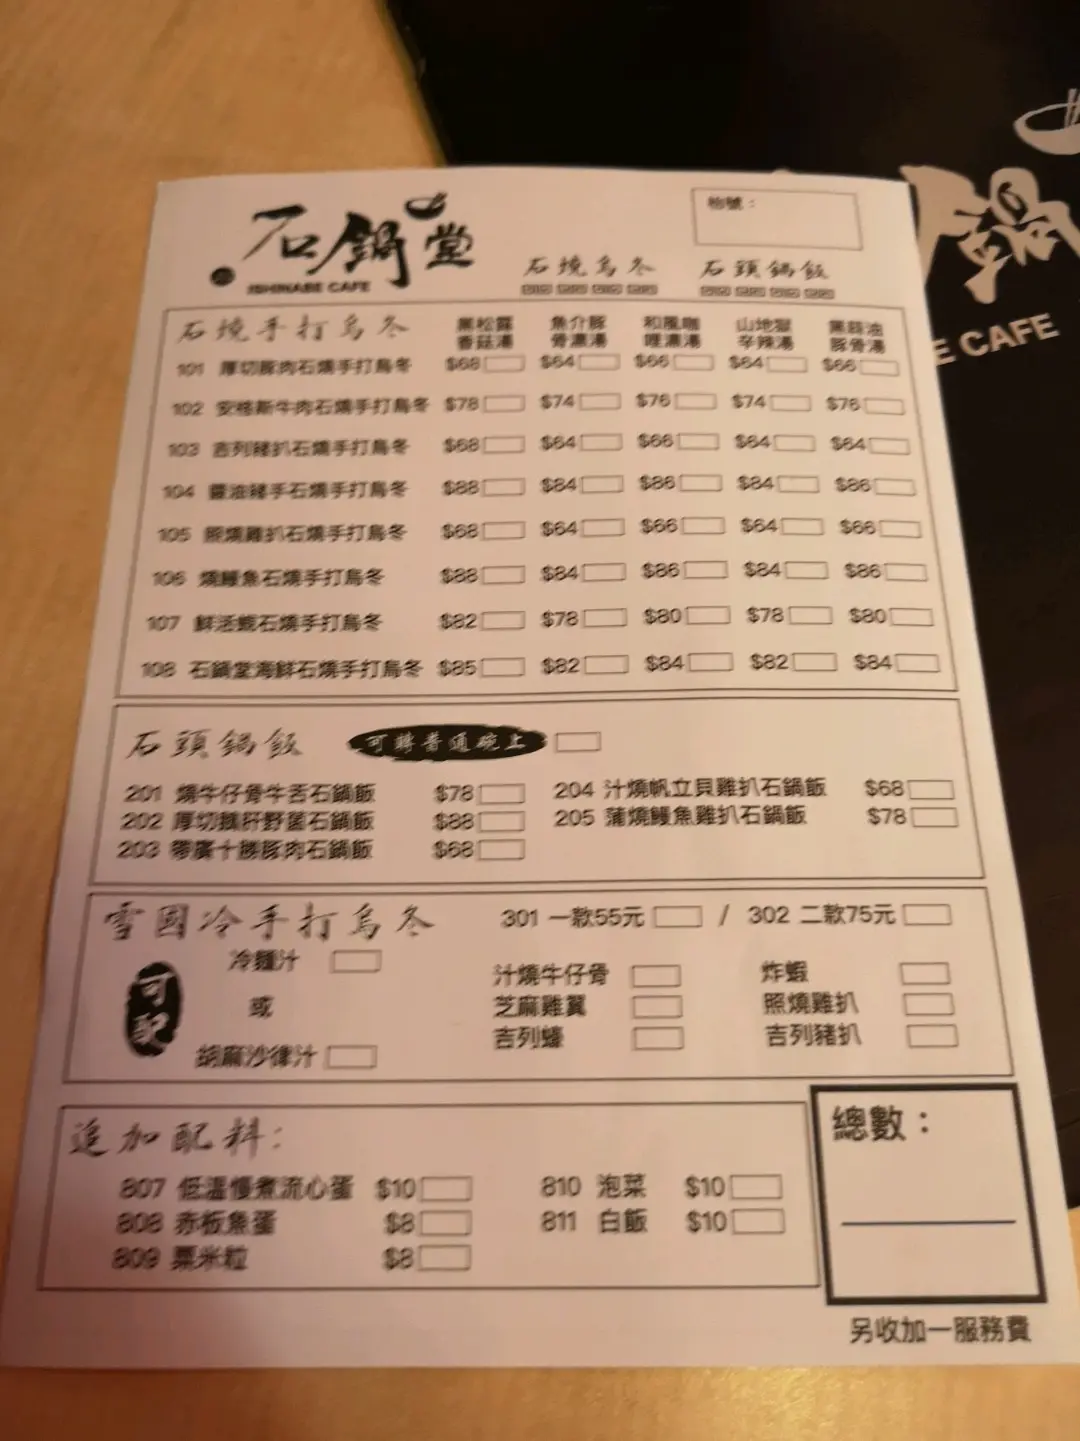 石鍋堂
ISHINABE CAFE
枱號：
石燒烏冬 石頭鍋飯
鍋
E CAFE
石燒手打烏冬 黑松露香菇湯 魚介豚骨濃湯 和風咖喱濃湯 山地獄辛辣湯 黑蒜油豚骨湯
101 厚切豚肉石燒手打烏冬 $68 $64 $66 $64 $66
102 安格斯牛肉石燒手打烏冬 $78 $74 $76 $74 $76
103 吉列豬扒石燒手打烏冬 $68 $64 $66 $64 $64
104 醬油豬手石燒手打烏冬 $88 $84 $86 $84 $86
105 照燒雞扒石燒手打烏冬 $68 $64 $66 $64 $66
106 燒鰻魚石燒手打烏冬 $88 $84 $86 $84 $86
107 鮮活蜆石燒手打烏冬 $82 $78 $80 $78 $80
108 石鍋堂海鮮石燒手打烏冬 $85 $82 $84 $82 $84
石頭鍋飯 可轉普通碗上
201 燒牛仔骨牛舌石鍋飯 $78 204 汁燒帆立貝雞扒石鍋飯 $68
202 厚切鵝肝野菌石鍋飯 $88 205 蒲燒鰻魚雞扒石鍋飯 $78
203 帶廣十勝豚肉石鍋飯 $68
雪國冷手打烏冬 301 一款55元 / 302 二款75元
可配
冷麵汁 汁燒牛仔骨 炸蝦
或 芝麻雞翼 照燒雞扒
胡麻沙律汁 吉列蠔 吉列豬扒
追加配料：
807 低溫慢煮流心蛋 $10 810 泡菜 $10
808 赤板魚蛋 $8 811 白飯 $10
809 粟米粒 $8
總數：
另收加一服務費